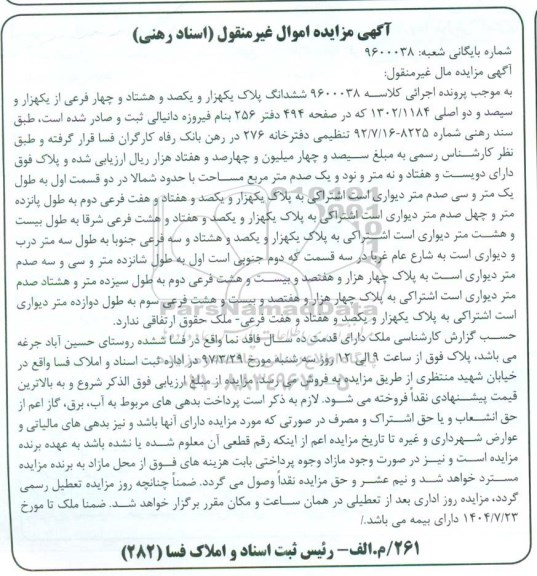 آگهی مزایده اموال غیرمنقول (اسناد رهنی)
شماره بایگانی شعبه: ۹۶۰۰۰۳۸
آگهی مزایده مال غیرمنقول:
به موجب پرونده اجرائی کلاسه ۹۶۰۰۰۳۸ ششدانگ پلاک یکهزار و یکصد و هشتاد و چهار فرعی از یکهزار و
سیصد و دو اصلی ۱۳۰۲/۱۱۸۴ که در صفحه ۴۹۴ دفتر ۲۵۶ بنام فیروزه دانیالی ثبت و صادر شده است، طبق
سند رهنی شماره ۸۲۲۵-۹۲/۷/۱۶ تنظیمی دفترخانه ۲۷۶ در رهن بانک رفاه کارگران فسا قرار گرفته و طبق
نظر کارشناس رسمی به مبلغ سیصد و چهار میلیون و چهارصد و هفتاد هزار ریال ارزیابی شده و پلاک فوق
دارای دویست و هفتاد و نه متر و نود و یک صدم متر مربع مساحت با حدود شمالا در دو قسمت اول به طول
یک متر و سی صدم متر دیواری است اشتراکی به پلاک یکهزار و یکصد و هفتاد و هفت فرعی دوم به طول پانزده
متر و چهل صدم متر دیواری است اشتراکی به پلاک یکهزار و یکصد و هفتاد و هشت فرعی شرقا به طول بیست
و هشت متر دیواری است اشتراکی به پلاک یکهزار و یکصد و هشتاد و سه فرعی جنوبا به طول سه متر درب
و دیواری است به شارع عام غربا در سه قسمت که دوم جنوبی است اول به طول شانزده متر و سی و سه صدم
متر دیواری است به پلاک چهار هزار و هفتصد و بیست و هشت فرعی دوم به طول سیزده متر و هشتاد صدم
متر دیواری است اشتراکی به پلاک چهار هزار و هفتصد و بیست و هشت فرعی سوم به طول دوازده متر دیواری
است اشتراکی به پلاک یکهزار و یکصد و هفتاد و هفت فرعی- ملک حقوق ارتفاقی ندارد.
حسب گزارش کارشناسی ملک دارای قدمت ده سال فاقد نما واقع در فسا شده روستای حسین آباد جرغه
می باشد، پلاک فوق از ساعت ۹ الی ۱۲ روز سه شنبه مورخ ۹۷/۳/۲۹ در اداره ثبت اسناد و املاک فسا واقع در
خیابان شهید منتظری از طریق مزایده به فروش می رسد. مزایده از مبلغ ارزیابی فوق الذکر شروع و به بالاترین
قیمت پیشنهادی نقداً فروخته می شود. لازم به ذکر است پرداخت بدهی های مربوط به آب، برق، گاز اعم از
حق انشعاب و یا حق اشتراک و مصرف در صورتی که مورد مزایده دارای آنها باشد و نیز بدهی های مالیاتی و
عوارض شهرداری و غیره تا تاریخ مزایده اعم از اینکه رقم قطعی آن معلوم شده یا نشده باشد به عهده برنده
مزایده است و نیز در صورت وجود مازاد وجوه پرداختی بابت هزینه های فوق از محل مازاد به برنده مزایده
مسترد خواهد شد و نیم عشر و حق مزایده نقداً وصول می گردد. ضمناً چنانچه روز مزایده تعطیل رسمی
گردد، مزایده روز اداری بعد از تعطیلی در همان ساعت و مکان مقرر برگزار خواهد شد. ضمنا ملک تا مورخ
۱۴۰۴/۷/۲۳ دارای بیمه می باشد./
۲۶۱/م.الف- رئیس ثبت اسناد و املاک فسا (۲۸۲)
ParsNamadData